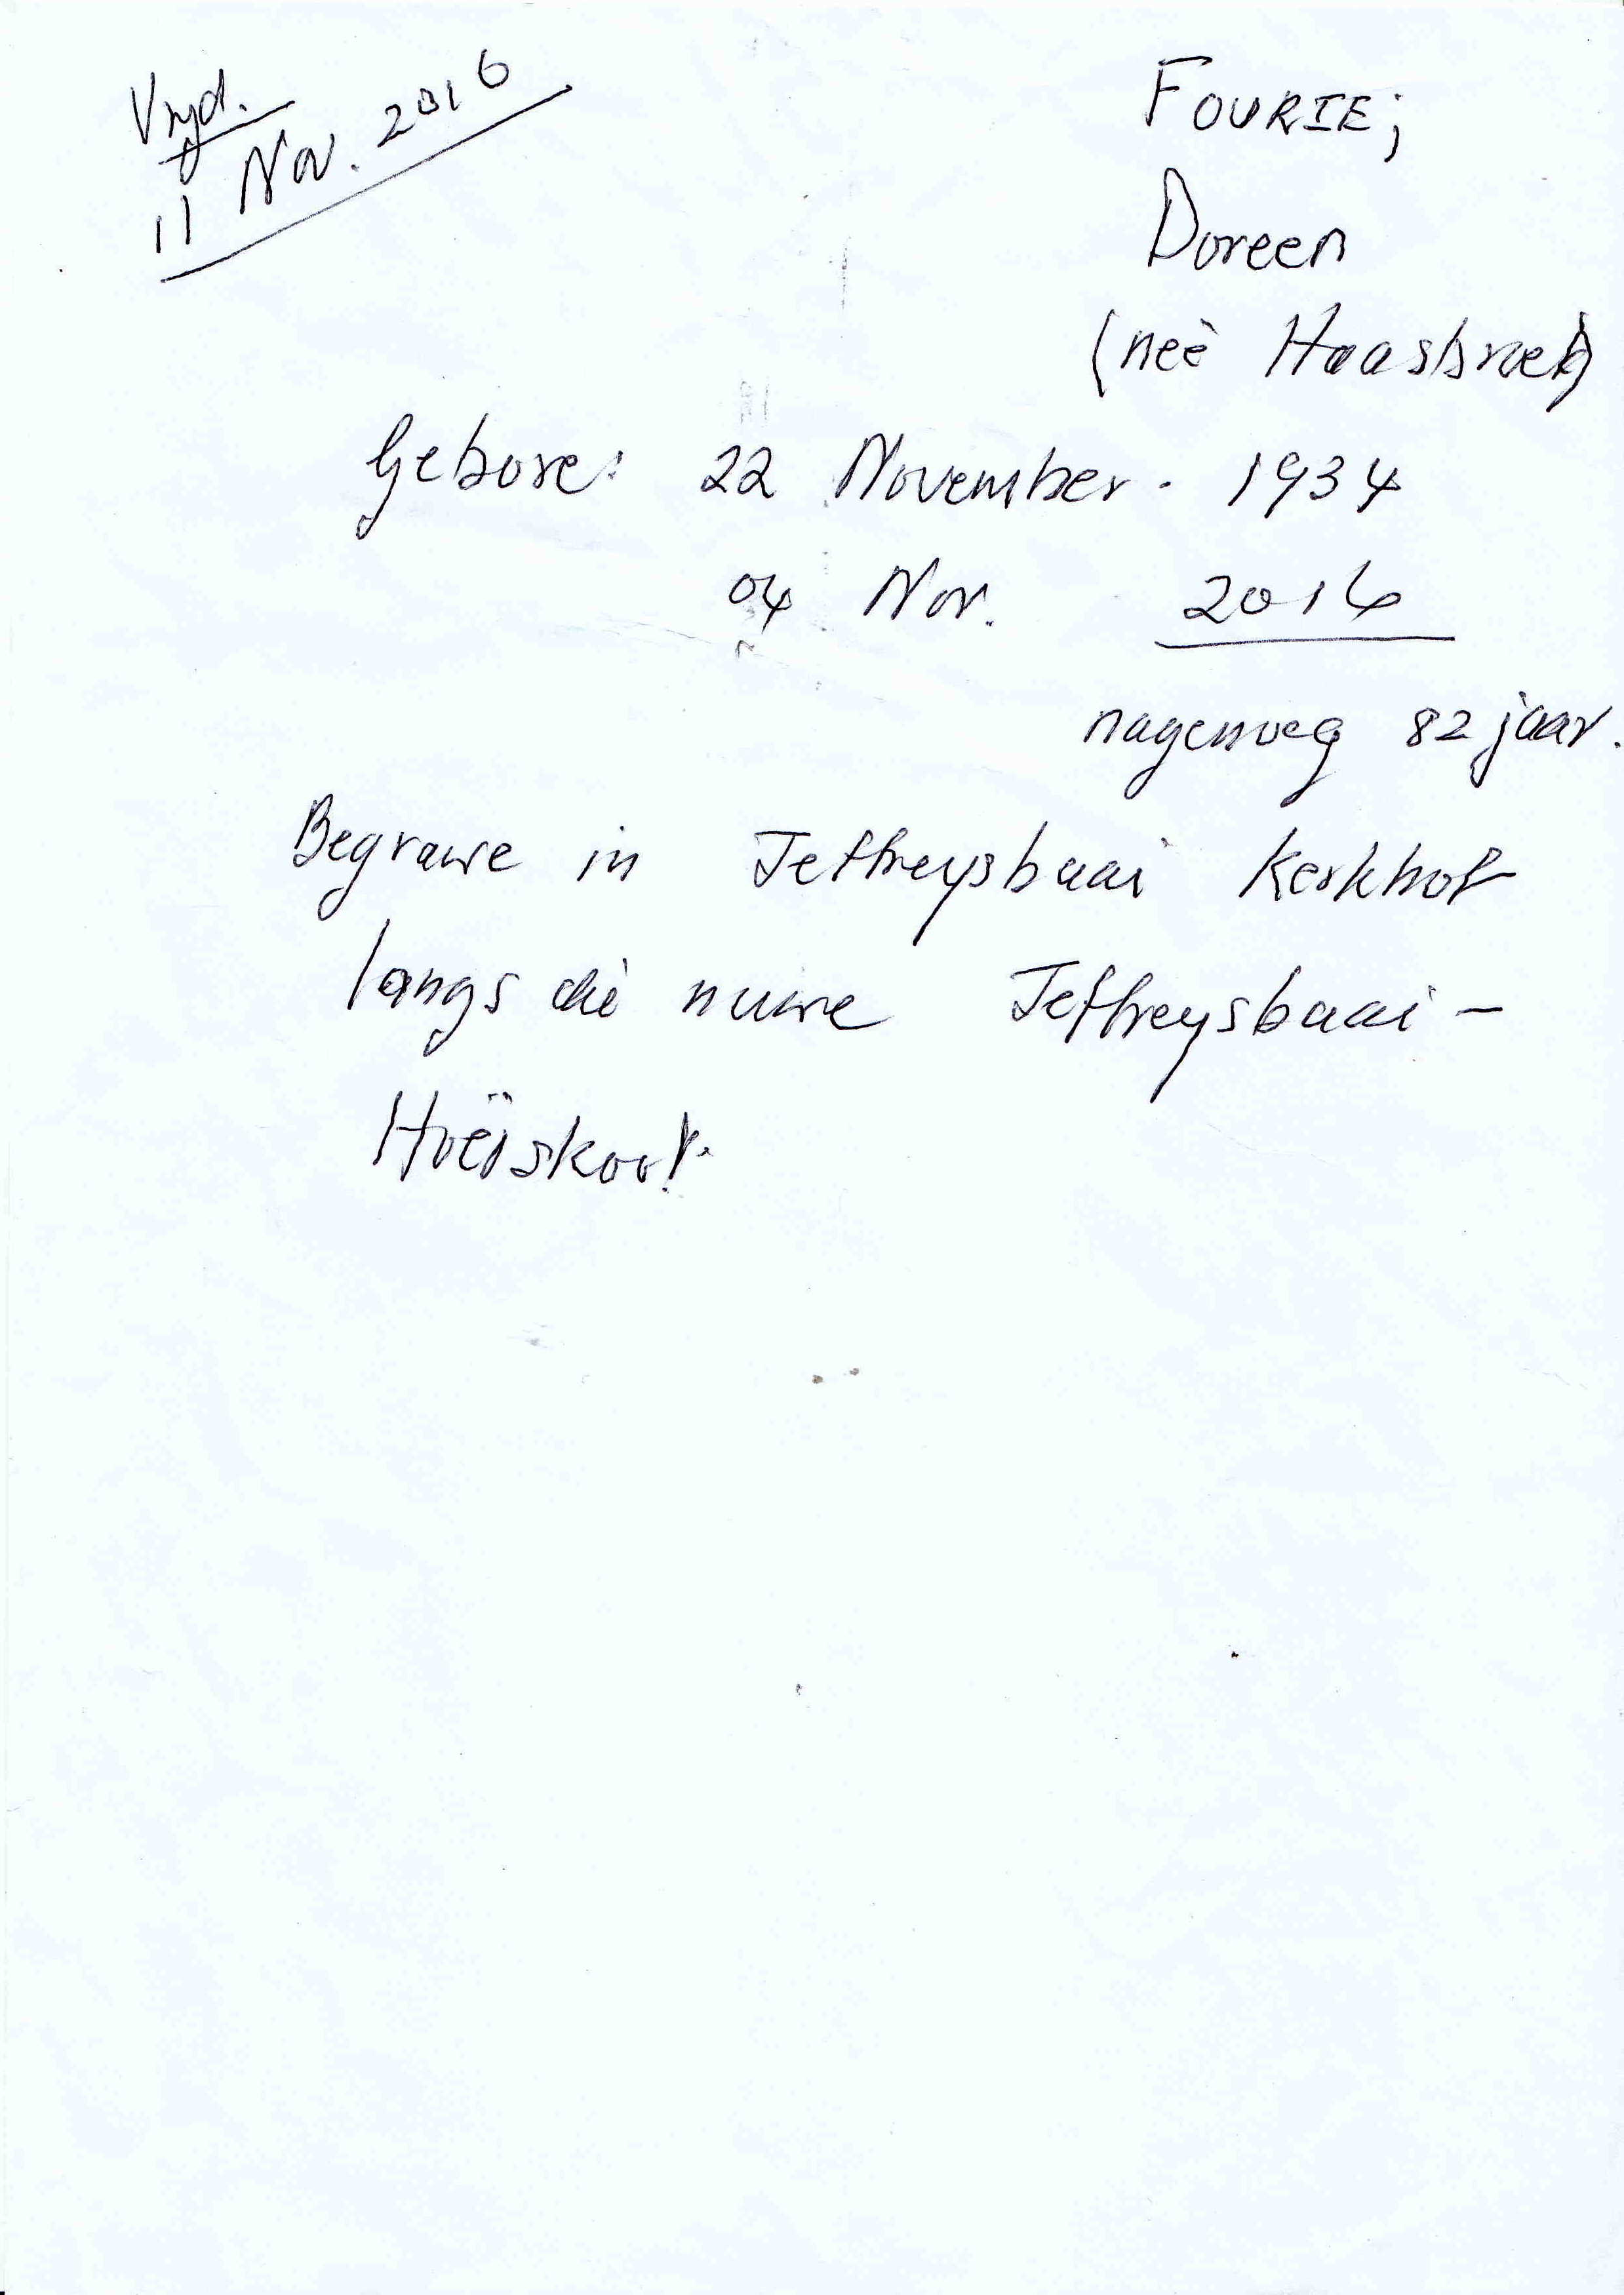 Vryd.
11 Nov. 2016
FOURIE;
Doreen
(neè Haasbroek)
Gebore: 22 November. 1934
04 Nov. 2016
nagenoeg 82 jaar.
Begrawe in Jeffreysbaai Kerkhof
langs die nuwe Jeffreysbaai-
Hoëiskool.